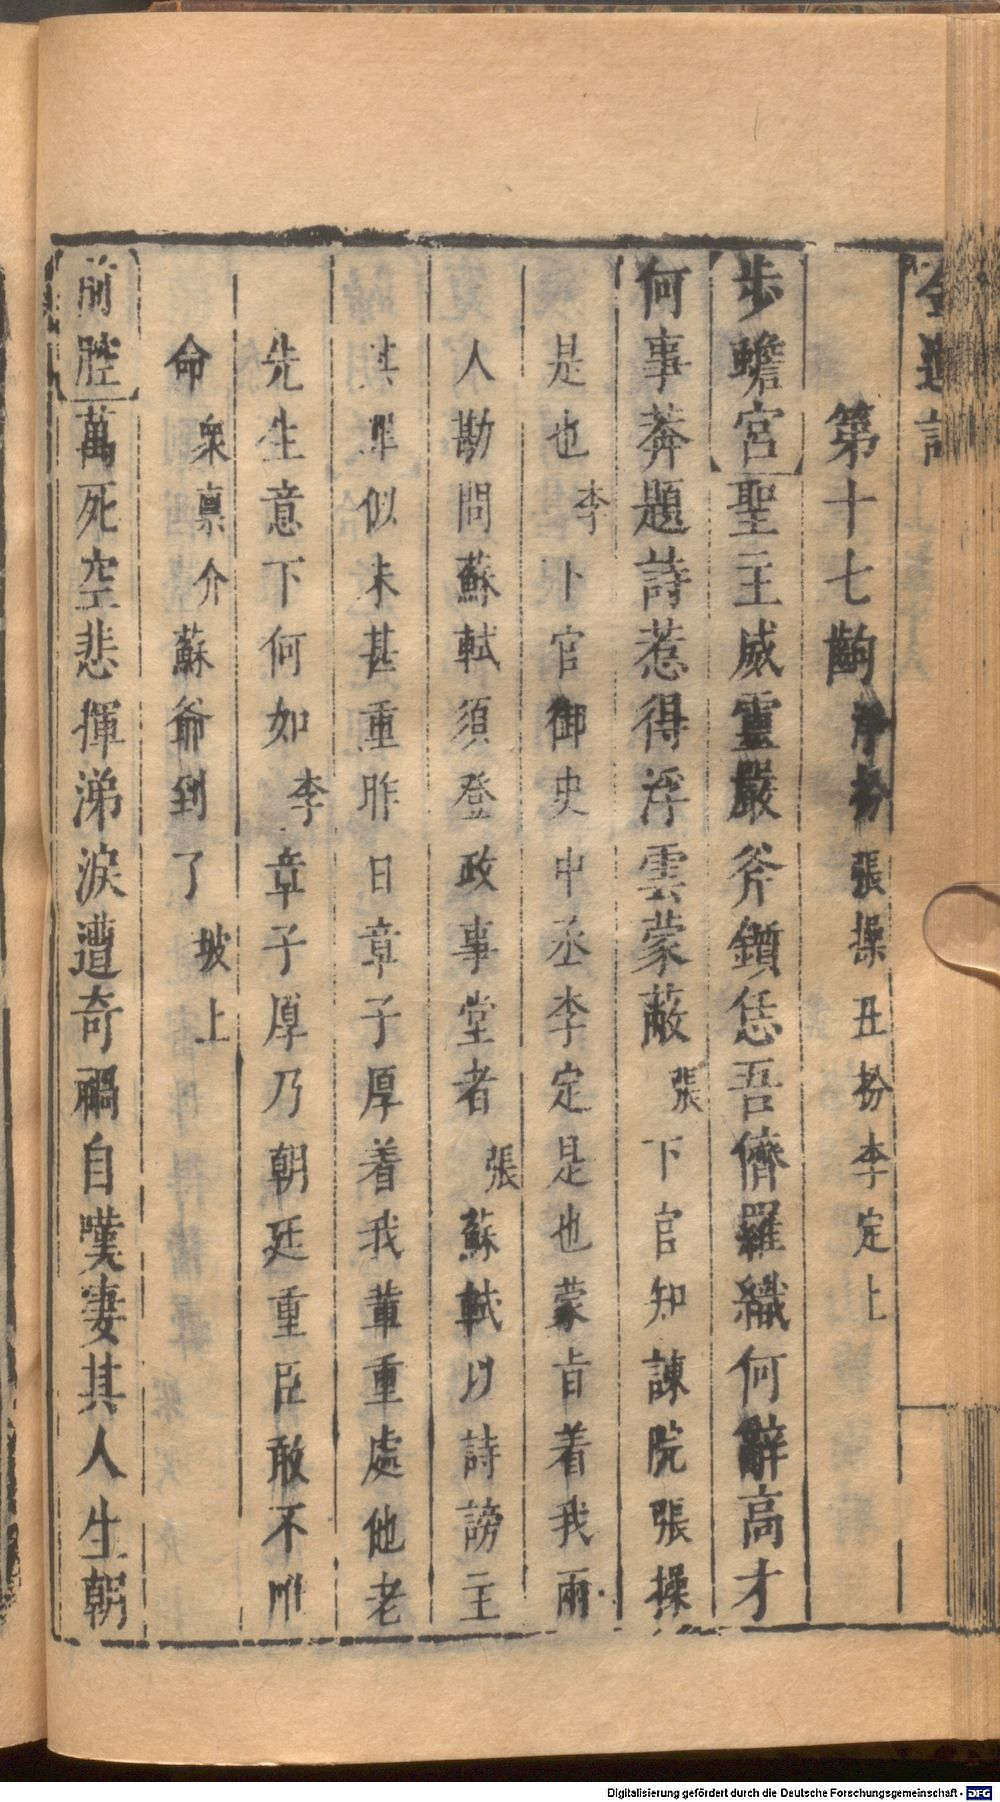 金蓮記
第十七齣 淨扮張操丑扮李定上
步蟾宮 聖主威靈嚴斧鑕恁吾儕羅織何辭高才
何事莽題詩惹得浮雲蒙蔽 張 下官知諫院張操
是也 李 卜官御史中丞李定是也蒙旨着我兩
人勘問蘇軾須登政事堂者 張 蘇軾以詩謗主
其罪似未甚重昨日章子厚着我輩重處他老
先生意下何如 李 章子厚乃朝廷重臣敢不唯
命 衆禀介 蘇爺到了 坡上
前腔 萬死空悲揮涕淚遭奇禍自嘆妻其人生朝
Digitalisierung gefördert durch die Deutsche Forschungsgemeinschaft - DFG